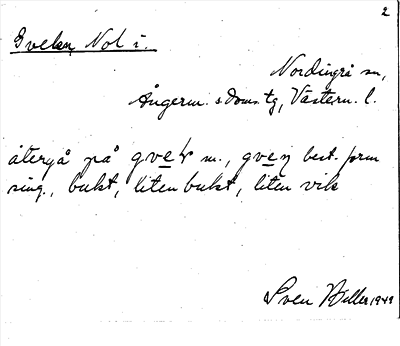 2
Gvelen, Not i.
Nordingrå sn,
Ångerm. s doms. tg, Västern. l.
återgå på gvel m., gveṇ best. form
sing., bukt, liten bukt, liten vik
Sven 1949